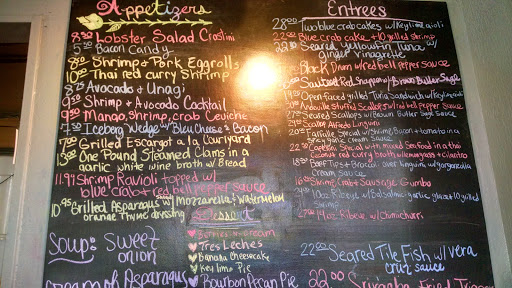 Appetizers
8.50 Lobster Salad Crostini
5 Bacon Candy
8.50 Shrimp + Pork Eggrolls
10.00 Thai red curry Shrimp
8.75 Avocado + Unagi
9.50 Shrimp + Avocado Cocktail
9.50 Mango, shrimp, crab Ceviche
7.50 Iceberg Wedge w/ Bleu Cheese + Bacon
Grilled Escargot a la Couryard
One Pound Steamed Clams in a
garlic white wine broth w/ Bread
Shrimp Ravioli topped w/
blue crab + red bell pepper sauce
Grilled Asparagus w/ Mozzarella + Watermelon
orange thyme dressing
Dessert
Berries + cream
Tres Leches
Banana Cheesecake
Key lime Pie
Bourbon Pecan Pie
Soup: Sweet
onion
Cream of Asparagus
Entrees
28.00 Two blue crab cakes w/ Key lime aioli
22.00 Blue crab cake + 10 grilled shrimp
Seared Yellowfin Tuna w/
Ginger Vinagrette
Black Drum w/ red bell pepper sauce
Sauteed Red Snapper w/ Brown Butter Sage
Open faced grilled Tuna Sandwich w/
Andouille Stuffed Scallops w/ red bell pepper sauce
Seared Scallops w/ Brown Butter Sage Sauce
Scallop Alfredo Linguini
Farfalle Special w/ Shrimp, Bacon + tomato in a
Spicy garlic cream sauce
Captains Special with mixed Seafood in a thai
coconut red curry broth w/ lemongrass + cilantro
Beef Tips + Broccoli over linguini w/ gorgonzola
Cream Sauce
Shrimp Crab + Sausage Gumbo
Ribeye w/ Balsamic-garlic glaze + 10 grilled
Shrimp
14oz Ribeye w/ Chimichurri
22.00 Seared Tile Fish w/ vera
cruz sauce
22.00 Fried